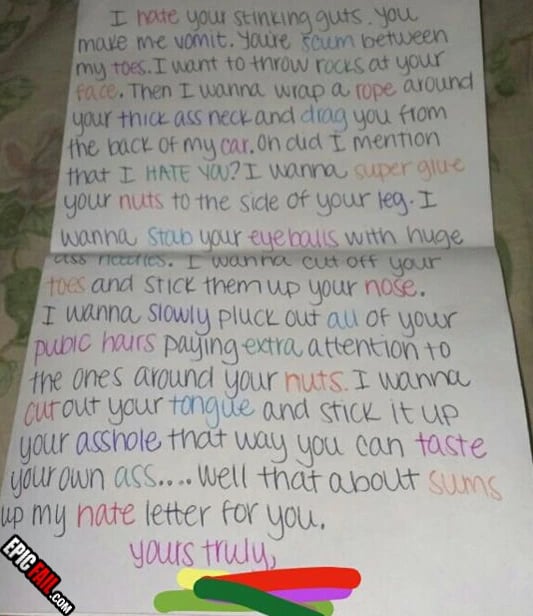 I hate your stinking guts. You
make me vomit. You're scum between
my toes. I want to throw rocks at your
face. Then I wanna wrap a rope around
your thick ass neck and drag you from
the back of my car. Oh did I mention
that I HATE YOU? I wanna super glue
your nuts to the side of your leg. I
wanna stab your eyeballs with huge
ass needles. I wanna cut off your
toes and stick them up your nose.
I wanna slowly pluck out all of your
pubic hairs paying extra attention to
the ones around your nuts. I wanna
cut out your tongue and stick it up
your asshole that way you can taste
your own ass.... Well that about sums
up my hate letter for you.
yours truly,
EPICFAIL.COM